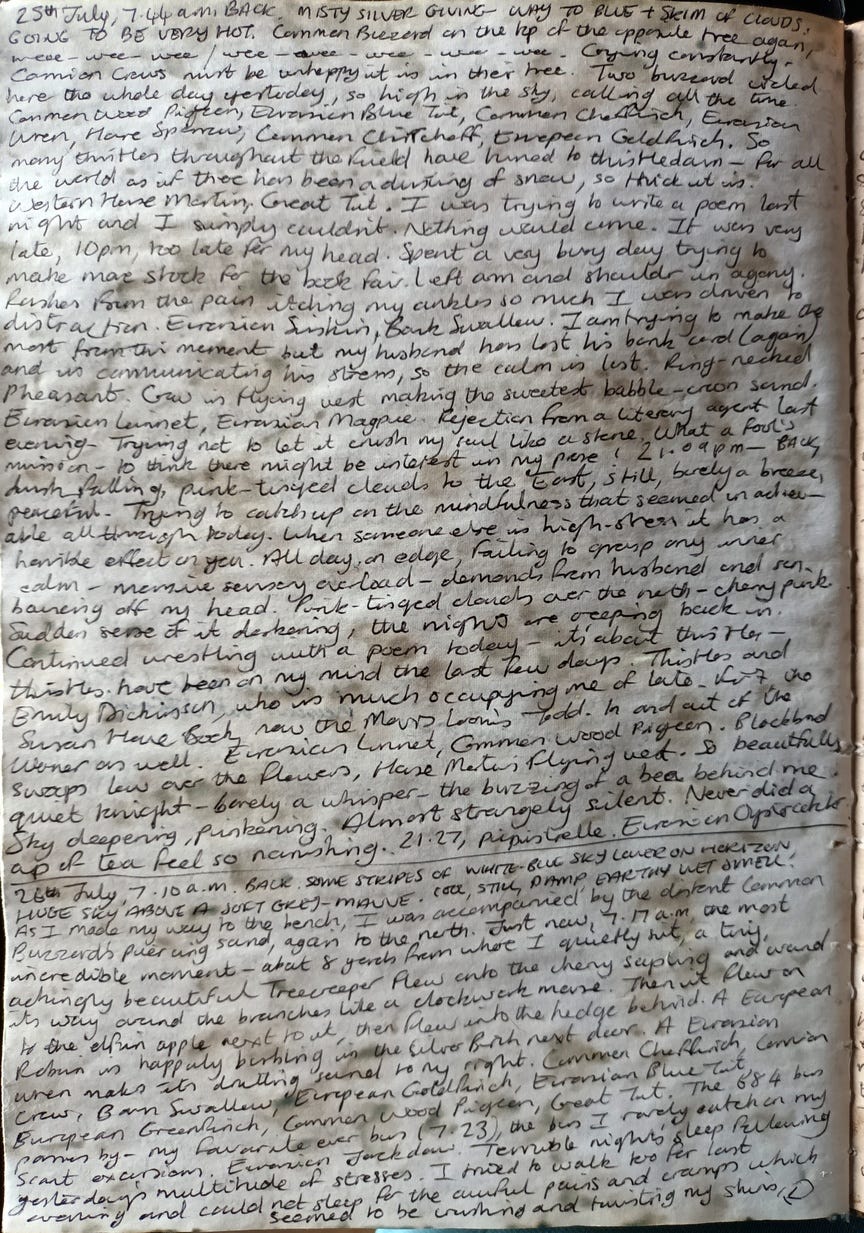 25th July, 7.44 a.m. BACK. MISTY SILVER GIVING WAY TO BLUE + SKIM OF CLOUDS.
GOING TO BE VERY HOT. Common Buzzard on the top of the opposite tree again,
wee - wee - wee / wee - wee - wee - wee - wee. Crying constantly.
Carrion Crows must be unhappy it is in their tree. Two buzzard circled
here the whole day yesterday, so high in the sky, calling all the time.
Common Wood Pigeon, Eurasian Blue Tit, Common Chaffinch, Eurasian
Wren, House Sparrow, Common Chiffchaff, European Goldfinch. So
many thistles throughout the field have turned to thistledown - for all
the world as if there has been a dusting of snow, so thick it is.
Western House Martin, Great Tit. I was trying to write a poem last
night and I simply couldn't. Nothing would come. It was very
late, 10pm, too late for my head. Spent a very busy day trying to
make more stock for the book fair. Left arm and shoulder in agony.
Rashes from the pain itching my ankles so much I was driven to
distraction. Eurasian Siskin, Barn Swallow. I am trying to make the
most from this moment but my husband has lost his bank card (again)
and is communicating his stress, so the calm is lost. Ring-necked
Pheasant. Crow is flying west making the sweetest babble-croon sound.
Eurasian Linnet, Eurasian Magpie. Rejection from a literary agent last
evening - Trying not to let it crush my soul like a stone. What a fool's
mission - to think there might be interest in my prose! 21.09pm - BACK,
dusk falling, pink-tinged clouds to the East, still, barely a breeze,
peaceful. Trying to catch up on the mindfulness that seemed unachiev-
able all through today. When someone else is high-stress it has a
horrible effect on you. All day on edge, failing to grasp any inner
calm - massive sensory overload - demands from husband and son
bouncing off my head. Pink-tinged clouds over the north - cherry pink
Sudden sense of it darkening, the nights are creeping back in.
Continued wrestling with a poem today - it's about thistles -
thistles have been on my mind the last few days. Thistles and
Emily Dickinson, who is much occupying me of late - the
Susan Howe Book, now the Mavis Loomis Todd. In and out of the
Woner as well. Eurasian Linnet, Common Wood Pigeon. Blackbird
swoops low over the flowers, House Martins flying west. So beautifully
quiet tonight - barely a whisper - the buzzing of a bee behind me.
Sky deepening, pinkening. Almost strangely silent. Never did a
cup of tea feel so nourishing. 21.27, pipistrelle. Eurasian Oystercatcher
26th July, 7.10 a.m. BACK. SOME STRIPES OF WHITE-BLUE SKY LOWER ON HORIZON,
HUGE SKY ABOVE A SOFT GREY-MAUVE. COOL, STILL, DAMP, EARTHY WET SMELL.
As I made my way to the bench, I was accompanied by the distant Common
Buzzard's piercing sound, again to the north. Just now, 7.17 a.m, the most
incredible moment - about 8 yards from where I quietly sit, a tiny,
achingly beautiful Treecreeper flew onto the cherry sapling and wound
its way around the branches like a clockwork mouse. Then it flew on
to the elfin apple next to it, then flew into the hedge behind. A European
Robin is happily burbling in the Silver Birch next door. A Eurasian
wren makes its drilling sound to my right. Common Chaffinch, Carrion
Crow, Barn Swallow, European Goldfinch, Eurasian Blue Tit,
European Greenfinch, Common Wood Pigeon, Great Tit. The 684 bus
passes by - my favourite ever bus (7.23), the bus I rarely catch on my
scant excursions. Eurasian Jackdaw. Terrible night's sleep following
yesterday's multitude of stresses. I tried to walk too far last
evening and could not sleep for the awful pains and cramps which
seemed to be crushing and twisting my shins,